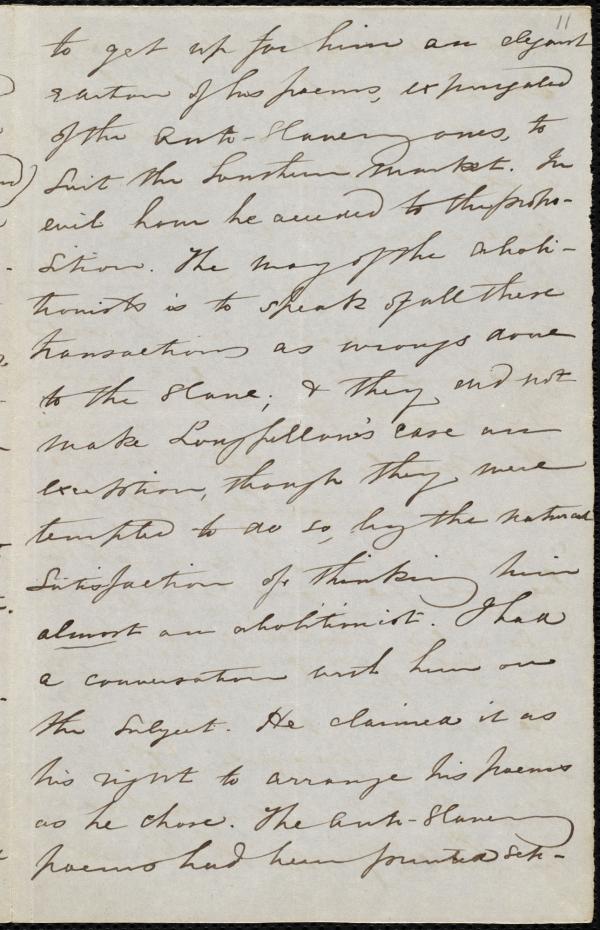 11
to get up for him an elegant
edition of his poems, expurgated
of the Anti-Slavery ones, to
suit the Southern market. In
evil hour he acceded to the propo-
sition. The way of the aboli-
tionists is to speak of all these
transactions as wrongs done
to the Slave; & they did not
make Longfellow's case an
exception, though they were
tempted to do so, by the natural
satisfaction of thinking him
almost an abolitionist. I had
a conversation with him on
the subject. He claimed it as
his right to arrange his poems
as he chose. The Anti-Slavery
poems had been printed sep-